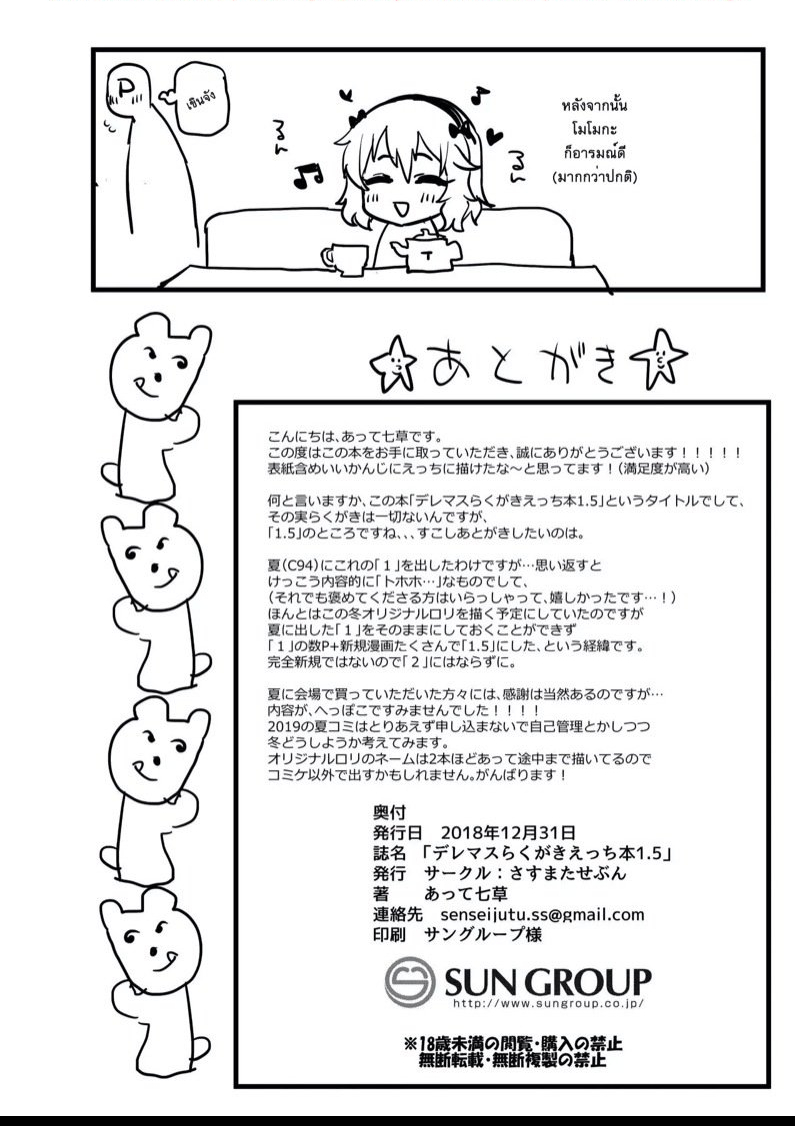 P
เขินจัง
るん
るん
หลังจากนั้น
โมโมกะ
ก็อารมณ์ดี
(มากกว่าปกติ)
T
あとがき
こんにちは、あって七草です。
この度はこの本をお手に取っていただき、誠にありがとうございます！！！！！
表紙含めいいかんじにえっちに描けたな～と思ってます！（満足度が高い）
何と言いますか、この本「デレマスらくがきえっち本1.5」というタイトルでして、
その実らくがきは一切ないんですが、
「1.5」のところですね、、、すこしあとがきしたいのは。
夏（C94）にこれの「１」を出したわけですが…思い返すと
けっこう内容的に「トホホ…」なものでして、
（それでも褒めてくださる方はいらっしゃって、嬉しかったです…！）
ほんとはこの冬オリジナルロリを描く予定にしていたのですが
夏に出した「１」をそのままにしておくことができず
「１」の数P+新規漫画たくさんで「1.5」にした、という経緯です。
完全新規ではないので「２」にはならずに。
夏に会場で買っていただいた方々には、感謝は当然あるのですが…
内容が、へっぽこですみませんでした！！！！
2019の夏コミはとりあえず申し込まないで自己管理とかしつつ
冬どうしようか考えてみます。
オリジナルロリのネームは2本ほどあって途中まで描いてるので
コミケ以外で出すかもしれません。がんばります！
奥付
発行日　2018年12月31日
誌名　「デレマスらくがきえっち本1.5」
発行　サークル：さすまたせぶん
著　　あって七草
連絡先　senseijutu.ss@gmail.com
印刷　サングループ様
SUN GROUP
http://www.sungroup.co.jp/
※18歳未満の閲覧・購入の禁止
無断転載・無断複製の禁止